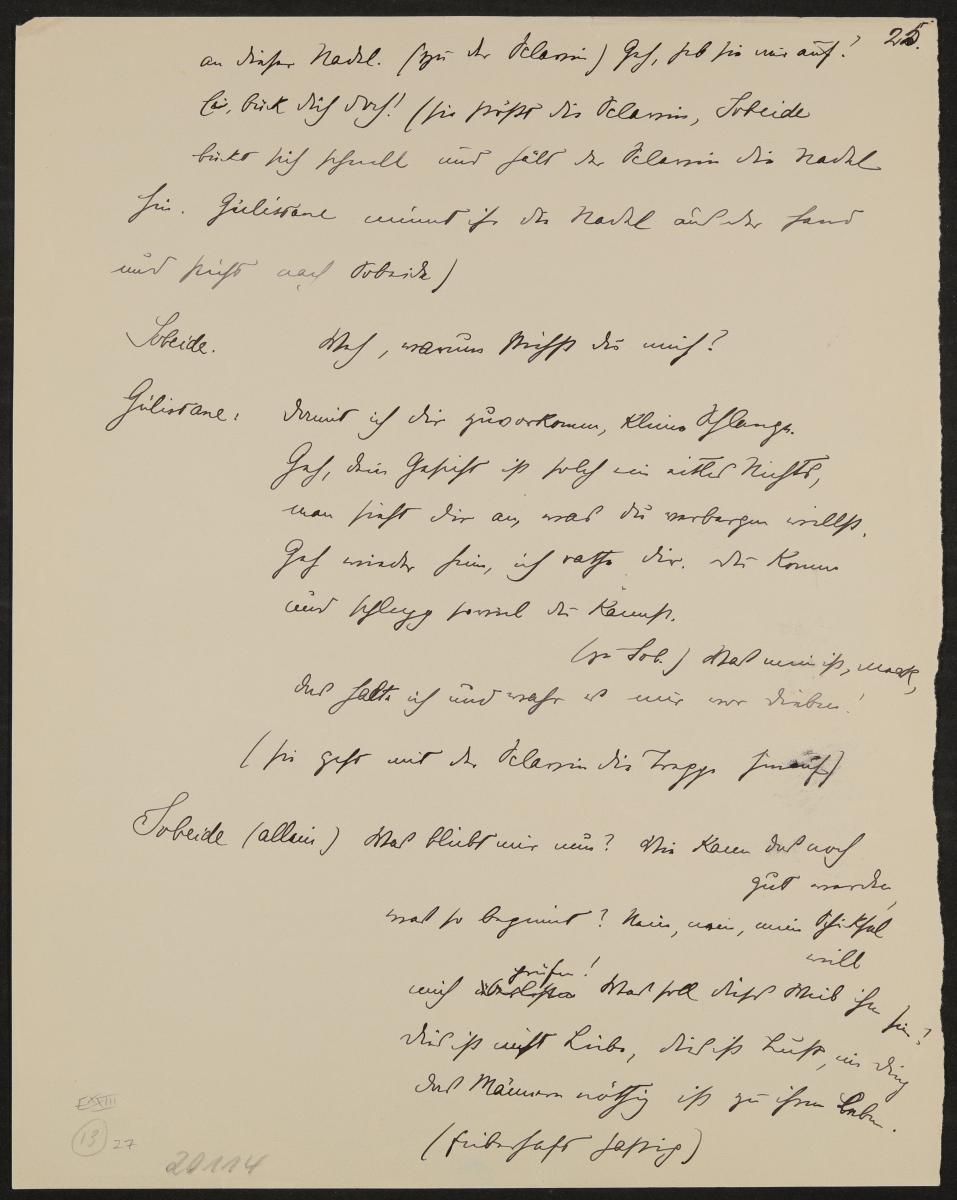 25.
an dieser Nadel. (zu der Sclavin) Geh, heb sie mir auf!
Ei, bück dich doch! (sie stößt die Sclavin, Sobeide
bückt sich schnell und hält der Sclavin die Nadel
hin. Gülistane nimmt ihr die Nadel aus der Hand
und sticht nach Sobeide)
Sobeide. Weh, warum stichst du mich?
Gülistane: damit ich dir zuvorkomm, kleine Schlange.
Geh, dein Gesicht ist solch ein eitles Nichts,
man sieht dir an, was du verbergen willst.
Geh wieder heim, ich rathe dir. du komm
und schlepp soviel du kannst.
(zu Sob.) Was mein ist, merk,
das halte ich und wahr es mir vor dieben!
(sie geht mit der Sclavin die Treppe hinauf)
Sobeide (allein) Was bleibt mir nun? Wie kann das noch
gut werden,
was so beginnt? Nein, nein, mein Schiksal
will
prüfen!
mich Was soll dieses Weib ihm sein?
dies ist nicht Liebe, dies ist Lust, ein ding
das Männern nöthig ist zu ihrem Leben.
(fieberhaft hastig)
E XIII
13 27
20114